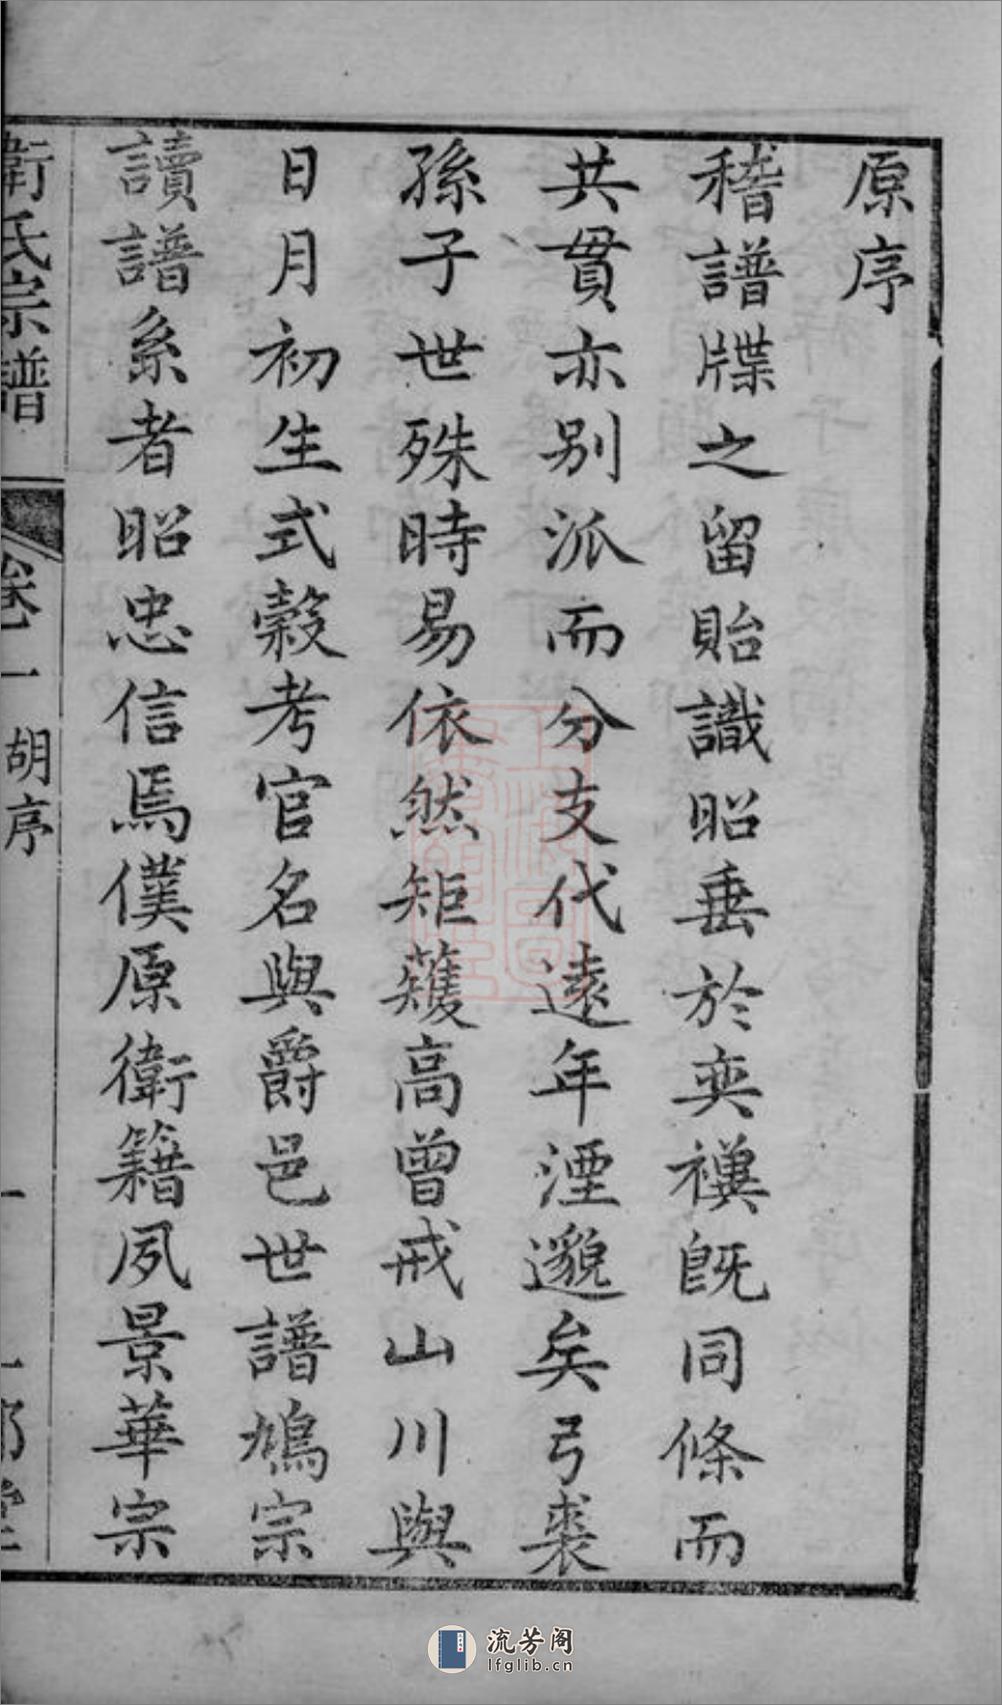 原序
稽譜牒之留貽識昭垂於奕禩既同條而
共貫亦別派而分支代遠年湮邈矣弓裘
孫子世殊時易依然矩矱高曾戒山川與
日月初生式穀考官名與爵邑世譜鳩宗
讀譜系者昭忠信焉僕原衛籍夙景華宗
衛氏宗譜 卷一 胡序 一
流芳阁
lfglib.cn